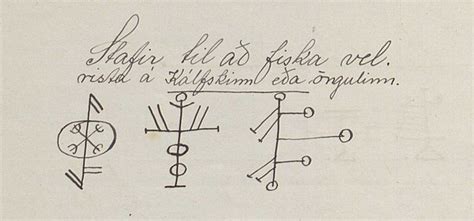 Stafir til að fiska vel.
rista á Kálfskinn eða öngulinn.